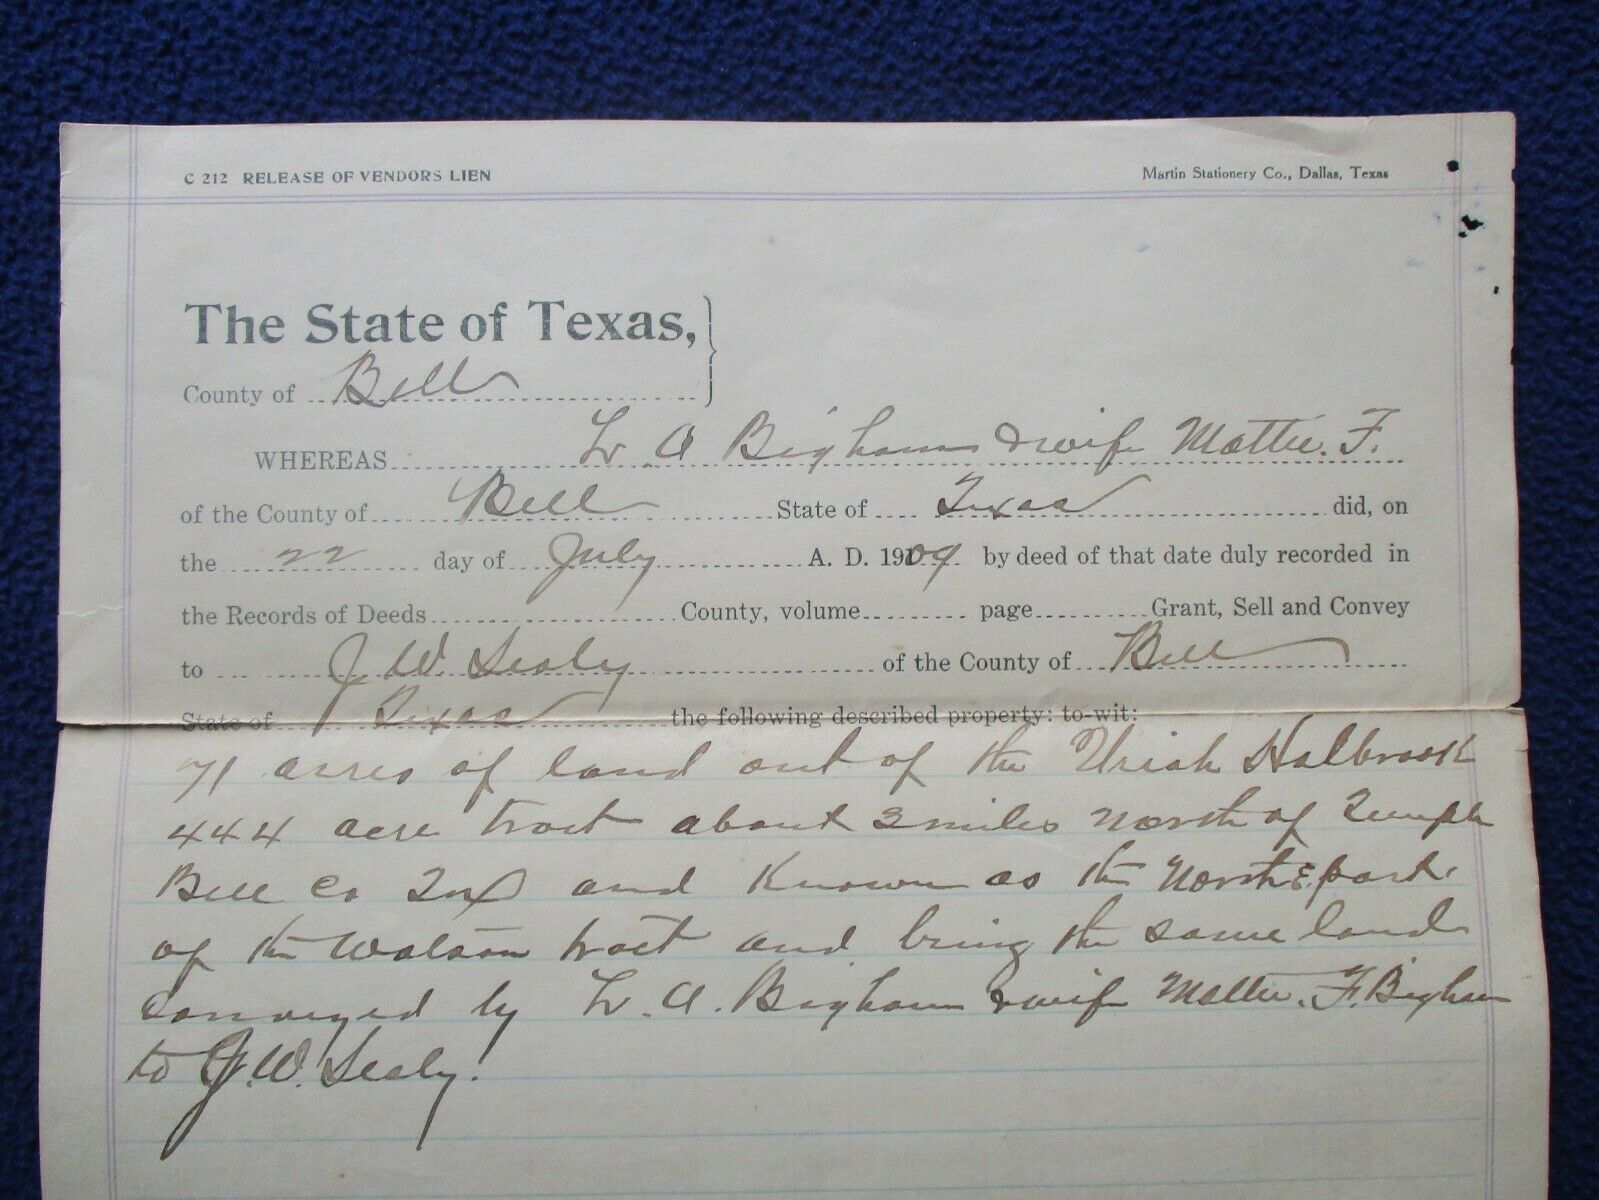 C 212 RELEASE OF VENDORS LIEN
Martin Stationery Co., Dallas, Texas
The State of Texas,
County of Bell
WHEREAS L. A Bigham & wife Mattie. F.
of the County of Bell State of Texas did, on
the 22 day of July A. D. 1909 by deed of that date duly recorded in
the Records of Deeds County, volume page Grant, Sell and Convey
to J W. Sealy of the County of Bell
State of Texas the following described property: to-wit:
71 acres of land out of the Uriah Halbrook
444 acre tract about 3 miles North of Temple
Bell Co Tex and Known as the North E. part.
of the Watson tract and being the same land
conveyed by L. A. Bigham & wife Mattie. F. Bigham
to J. W. Sealy.